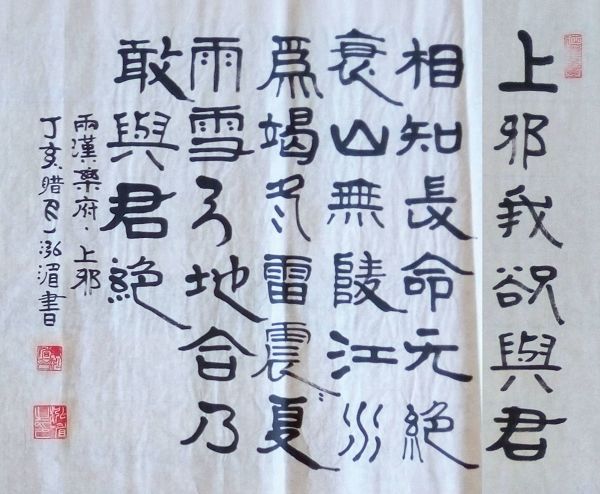 上邪我欲與君
相知長命无絕
衰山無陵江水
爲竭冬雷震夏
雨雪天地合乃
敢與君絕
兩漢樂府·上邪
丁亥腊月泓湄書